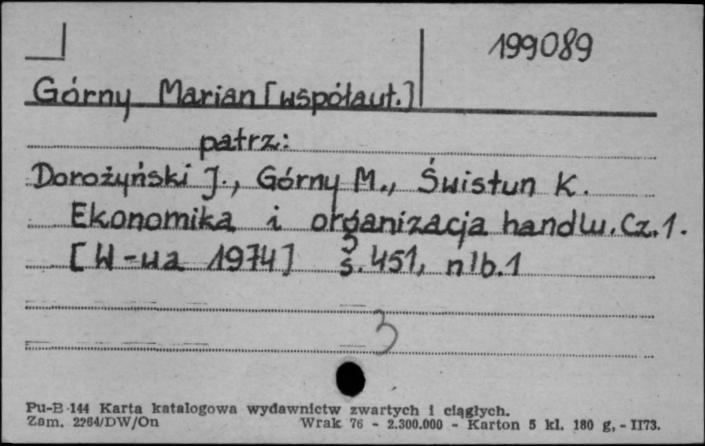 199089
Górny Marian [współaut.]
patrz:
Dorożyński J., Górny M., Świstun K.
Ekonomika i organizacja handlu. Cz. 1.
[W-wa 1974] s. 451, nlb. 1
3
Pu-B-144 Karta katalogowa wydawnictw zwartych i ciągłych.
Zam. 2264/DW/On Wrak 76 - 2.300.000 - Karton 5 kl. 180 g, - II73.